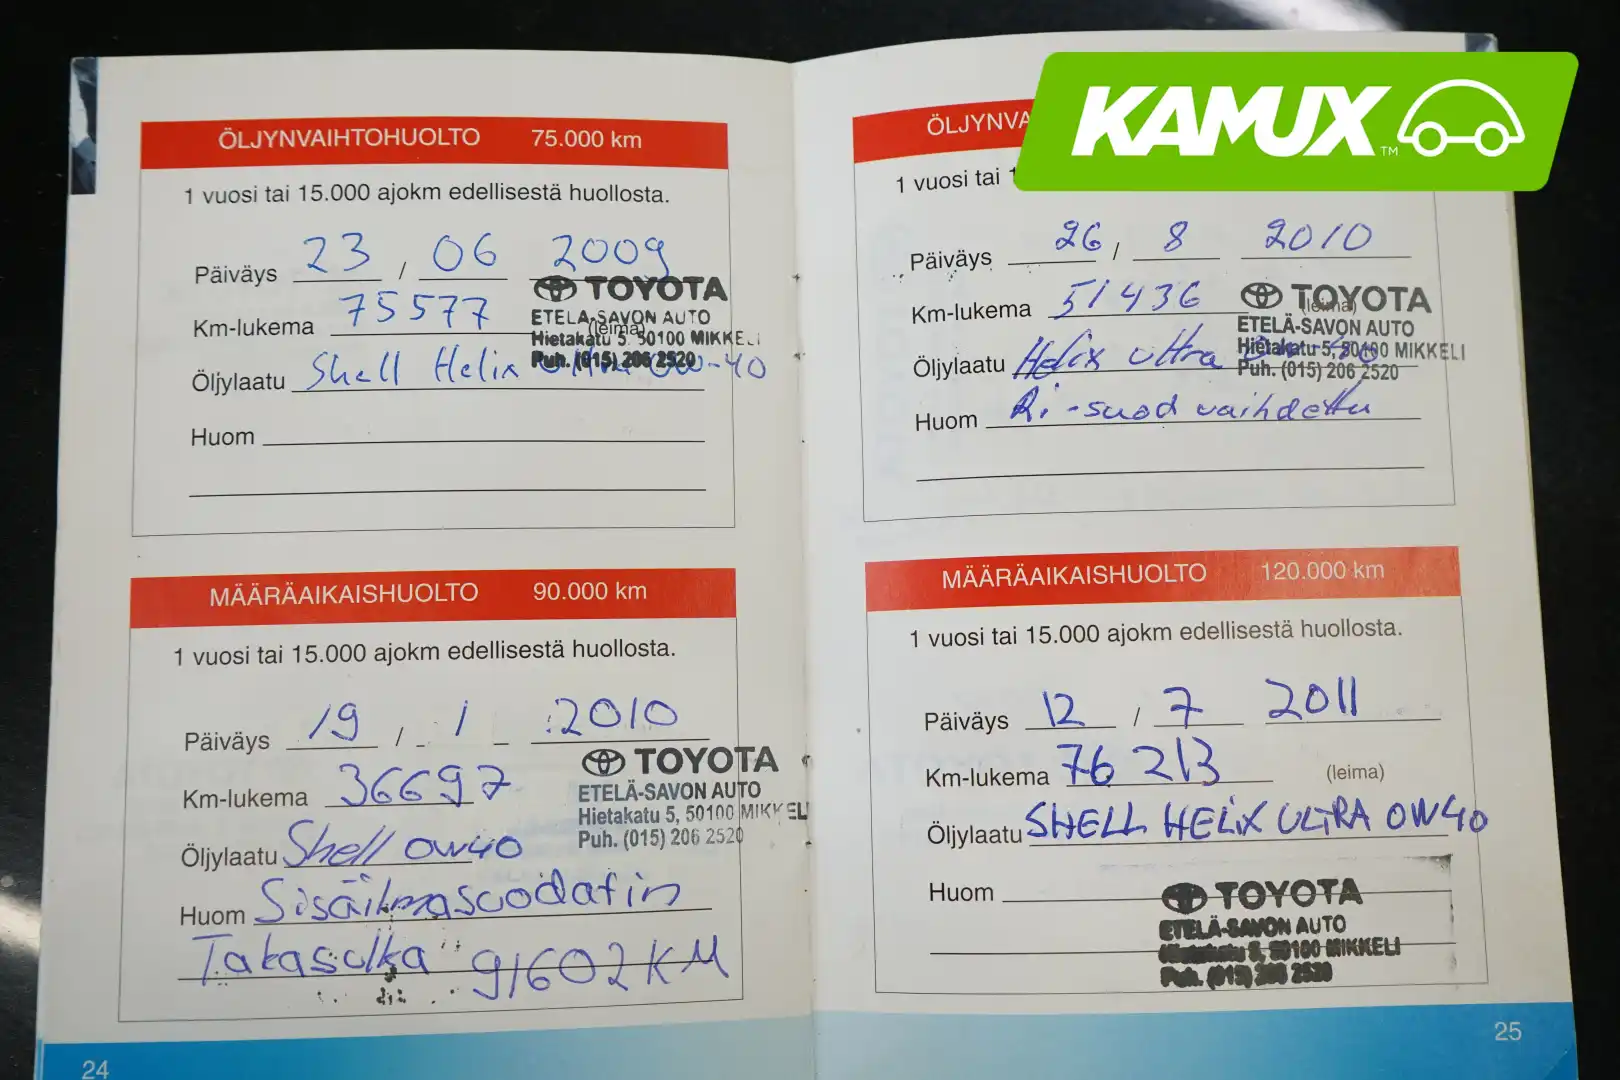 KAMUX™
ÖLJYNVAIHTOHUOLTO 75.000 km
1 vuosi tai 15.000 ajokm edellisestä huollosta.
Päiväys 23 / 06 2009
Km-lukema 75577 (leima)
Öljylaatu Shell Helix Ultra 0W-40
Huom
TOYOTA
ETELÄ-SAVON AUTO
Hietakatu 5, 50100 MIKKELI
Puh. (015) 206 2520
MÄÄRÄAIKAISHUOLTO 90.000 km
1 vuosi tai 15.000 ajokm edellisestä huollosta.
Päiväys 19 / 1 2010
Km-lukema 36697
Öljylaatu Shell 0W40
Huom Sisäilmasuodatin
Takasulka 91602 KM
TOYOTA
ETELÄ-SAVON AUTO
Hietakatu 5, 50100 MIKKELI
Puh. (015) 206 2520
24
ÖLJYNVA
1 vuosi tai 1
Päiväys 26 / 8 2010
Km-lukema 51436 (leima)
Öljylaatu Helix Ultra
Huom Ri-suod vaihdettu
TOYOTA
ETELÄ-SAVON AUTO
Hietakatu 5, 50100 MIKKELI
Puh. (015) 206 2520
MÄÄRÄAIKAISHUOLTO 120.000 km
1 vuosi tai 15.000 ajokm edellisestä huollosta.
Päiväys 12 / 7 2011
Km-lukema 76213 (leima)
Öljylaatu SHELL HELIX ULTRA 0W40
Huom
TOYOTA
ETELÄ-SAVON AUTO
Hietakatu 5, 50100 MIKKELI
Puh. (015) 206 2520
25